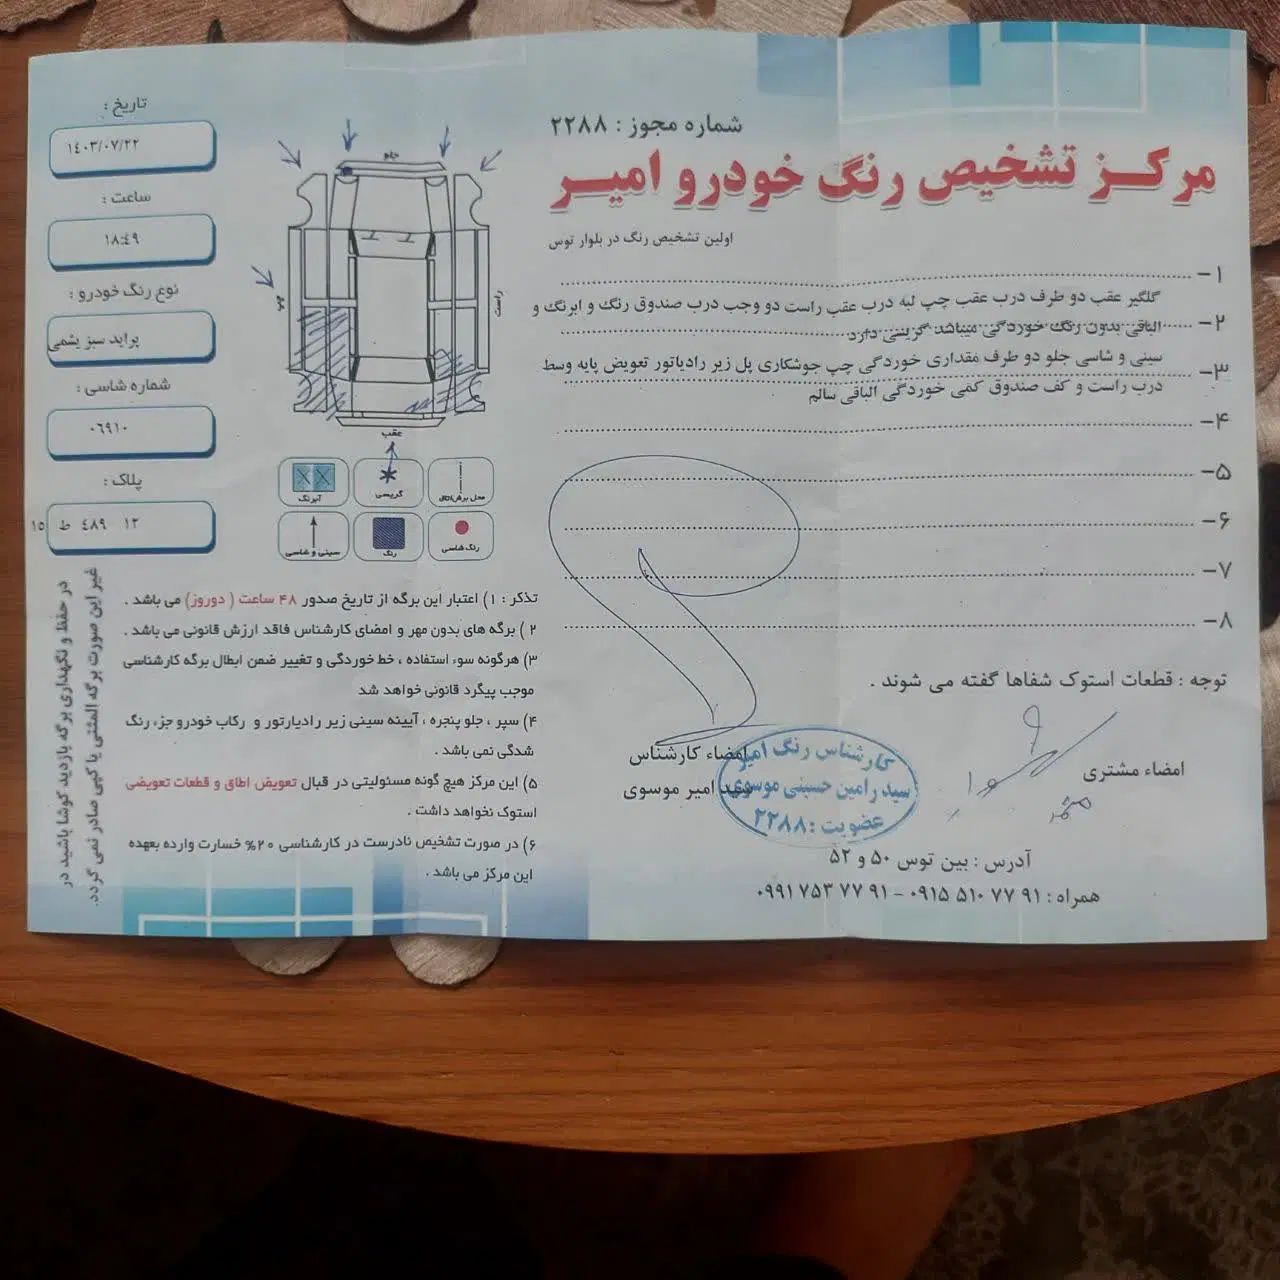 شماره مجوز : ۲۲۸۸
مرکز تشخیص رنگ خودرو امیر
اولین تشخیص رنگ در بلوار توس
۱–
گلگیر عقب دو طرف درب عقب چپ لبه درب عقب راست دو وجب درب صندوق رنگ و ابرنگ و
۲–
الباقی بدون رنگ خوردگی میباشد گریسی دارد
سینی و شاسی جلو دو طرف مقداری خوردگی چپ جوشکاری پل زیر رادیاتور تعویض پایه وسط
۳–
درب راست و کف صندوق کمی خوردگی الباقی سالم
۴–
۵–
۶–
۷–
۸–
توجه : قطعات استوک شفاها گفته می شوند .
امضاء مشتری
امضاء کارشناس
سید امیر موسوی
کارشناس رنگ امیر
سید رامین حسینی موسوی
عضویت : ۲۲۸۸
آدرس : بین توس ۵۰ و ۵۲
همراه : ۰۹۱۵ ۵۱۰ ۷۷ ۹۱ – ۰۹۹۱ ۷۵۳ ۷۷ ۹۱
تاریخ :
۱٤۰۳/۰۷/۲۲
ساعت :
۱۸:٤۹
نوع رنگ خودرو :
پراید سبز یشمی
شماره شاسی :
۰٦۹۱۰
پلاک :
۱۲ ٤۸۹ ط ۱٥
جلو
چپ
راست
عقب
محل برش اتاق
گریسی
آبرنگ
رنگ شاسی
رنگ
سینی و شاسی
تذکر : ۱) اعتبار این برگه از تاریخ صدور ۴۸ ساعت ( دوروز) می باشد .
۲ ) برگه های بدون مهر و امضای کارشناس فاقد ارزش قانونی می باشد .
۳) هرگونه سوء استفاده ، خط خوردگی و تغییر ضمن ابطال برگه کارشناسی
موجب پیگرد قانونی خواهد شد
۴) سپر ، جلو پنجره ، آیینه سینی زیر رادیارتور و رکاب خودرو جزء رنگ
شدگی نمی باشد .
۵) این مرکز هیچ گونه مسئولیتی در قبال تعویض اطاق و قطعات تعویضی
استوک نخواهد داشت .
۶) در صورت تشخیص نادرست در کارشناسی ۲۰% خسارت وارده بعهده
این مرکز می باشد .
در حفظ و نگهداری برگه بازدید کوشا باشید در
غیر این صورت برگه المثنی یا کپی صادر نمی گردد.